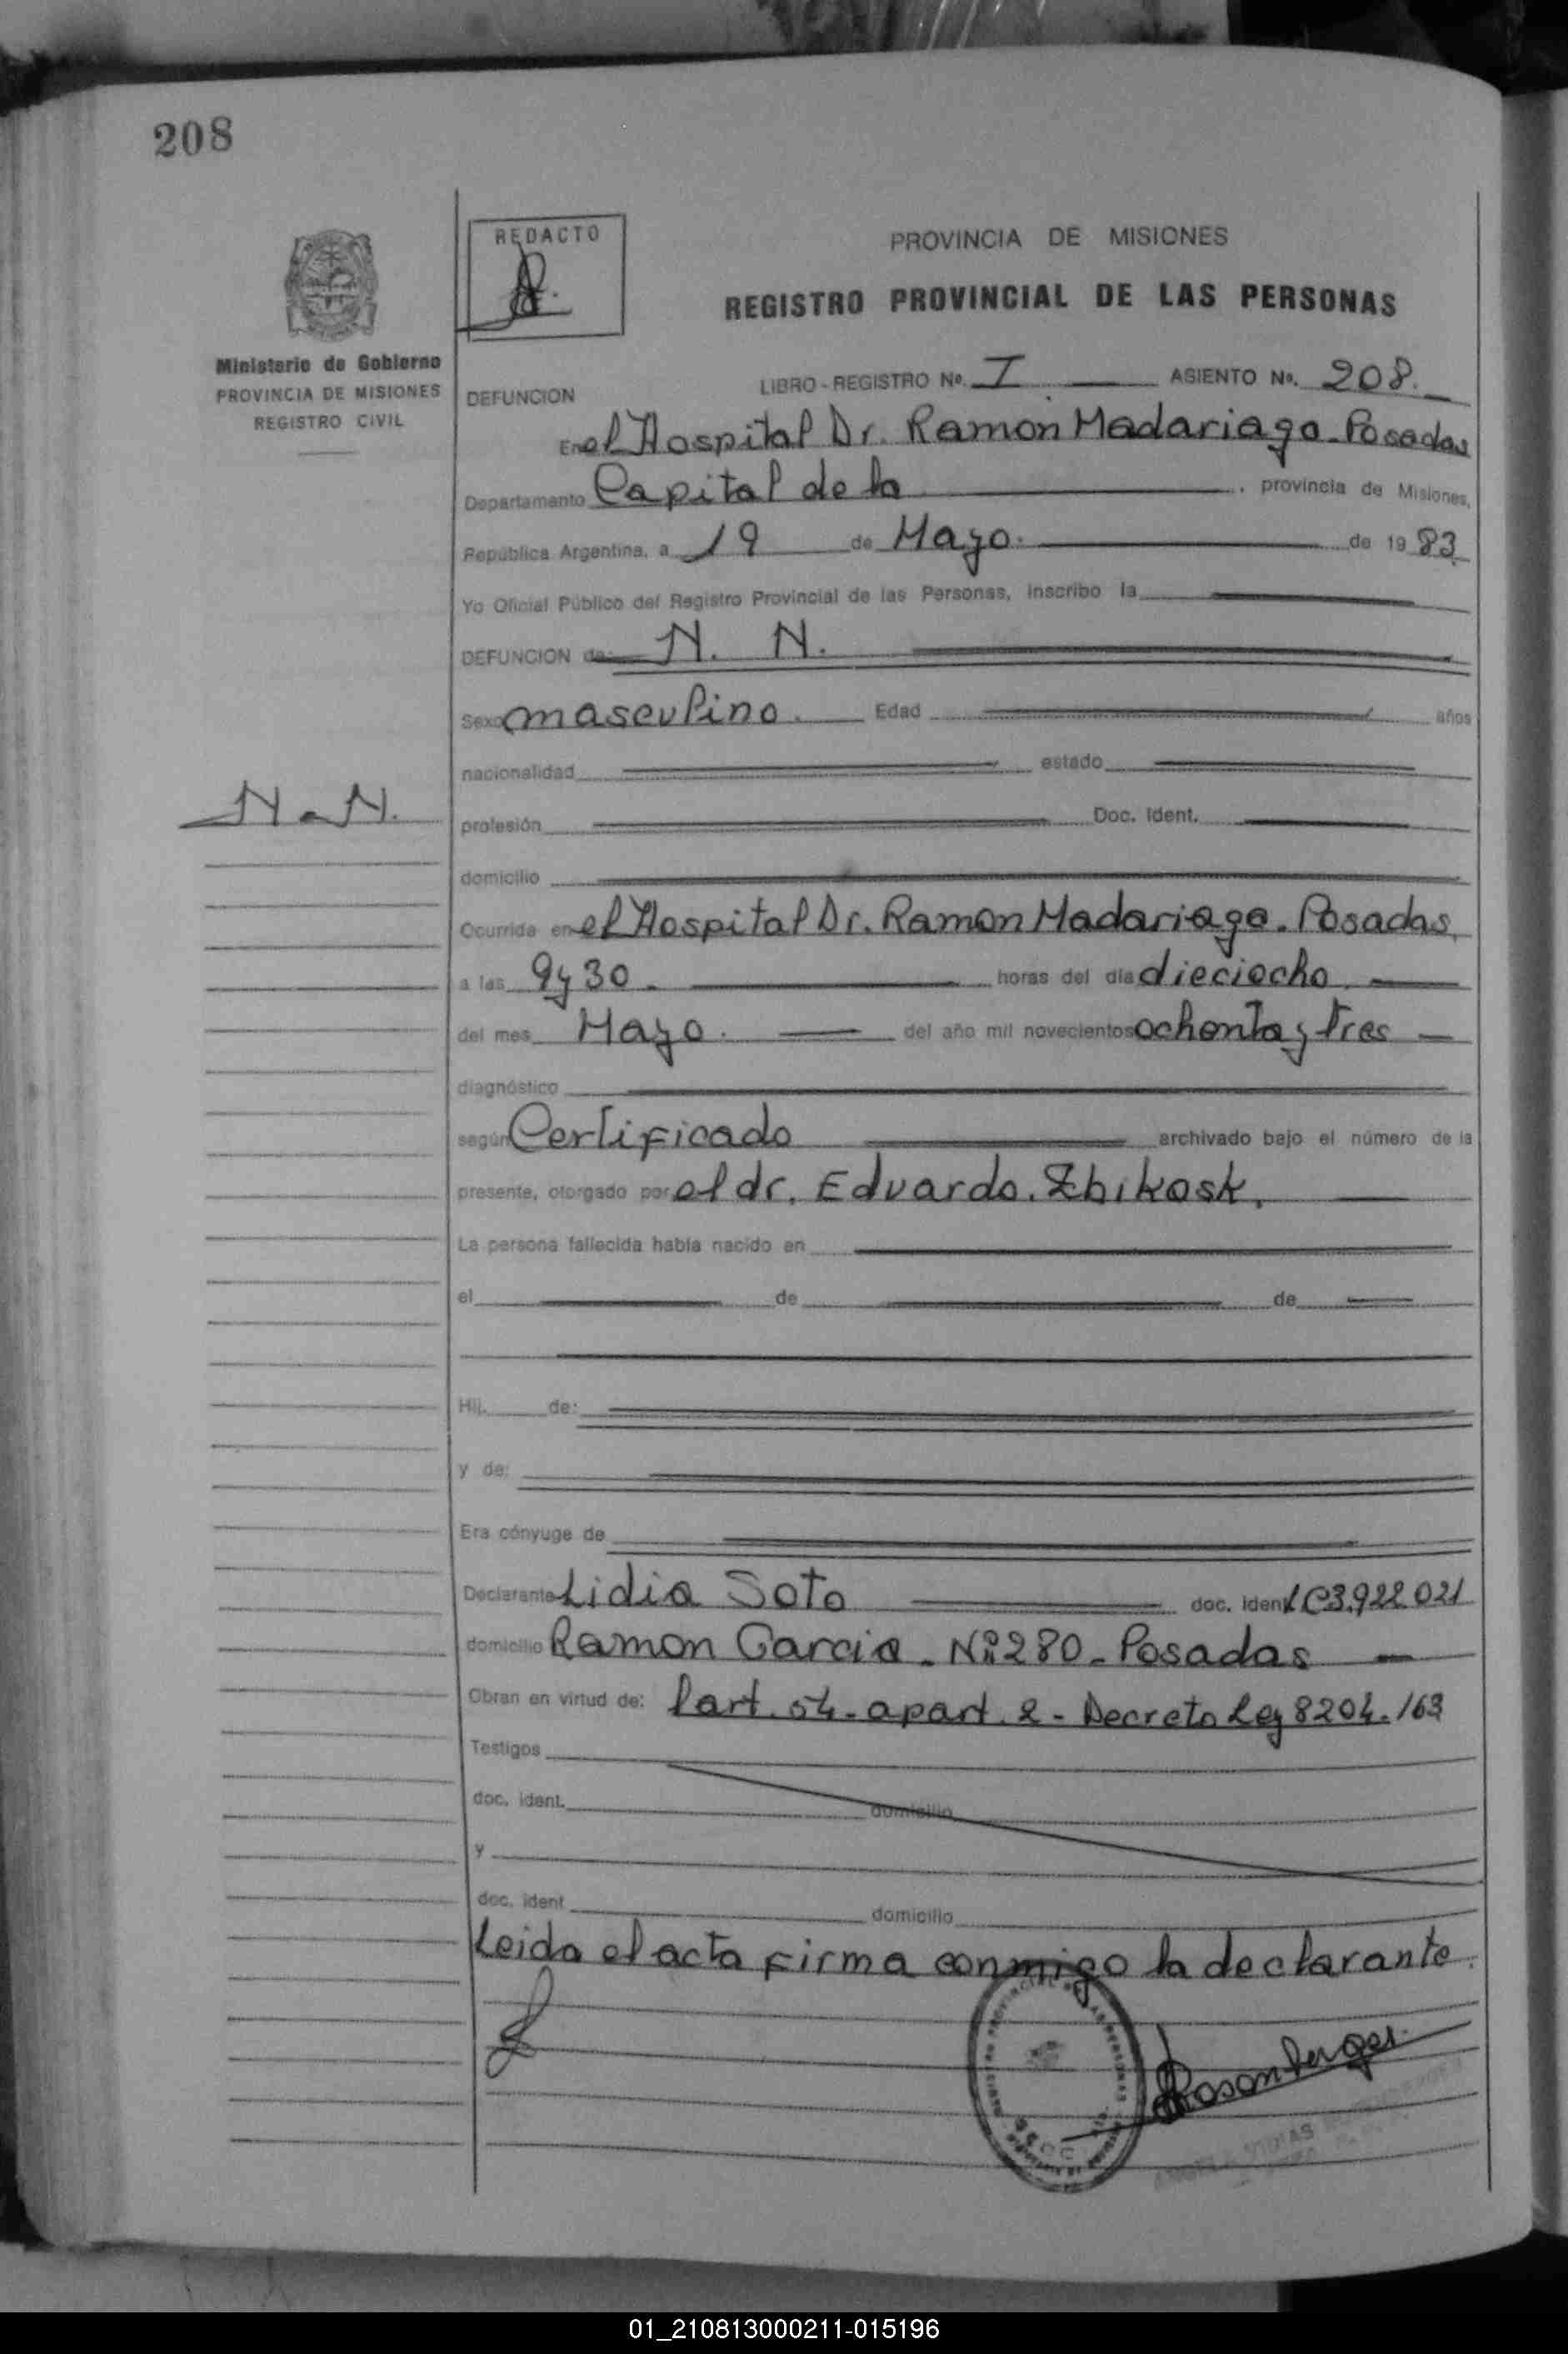 208
REDACTO
PROVINCIA DE MISIONES
REGISTRO PROVINCIAL DE LAS PERSONAS
Ministerio de Gobierno
PROVINCIA DE MISIONES
REGISTRO CIVIL
DEFUNCION LIBRO-REGISTRO Nº. I ASIENTO Nº. 208.
En el Hospital Dr. Ramon Madariaga - Posadas
Departamento Capital de la provincia de Misiones,
República Argentina, a 19 de Mayo. de 19 83
Yo Oficial Público del Registro Provincial de las Personas, inscribo la
DEFUNCION de: N. N.
Sexo masculino. Edad años
nacionalidad estado
N - N.
profesión Doc. Ident.
domicilio
Ocurrida en el Hospital Dr. Ramon Madariaga. Posadas,
a las 9 y 30 horas del día dieciocho.
del mes Mayo. del año mil novecientos ochenta y tres
diagnóstico
según Certificado archivado bajo el número de la
presente, otorgado por el dr. Eduardo. Zbikosk.
La persona fallecida había nacido en
el de de
Hij. de:
y de:
Era cónyuge de
Declarante Lidia Soto doc. Ident LC3.922.021
domicilio Ramon Garcia - Nº 280 - Posadas
Obran en virtud de: l'art. 54 - apart. 2 - Decreto Ley 8204./63
Testigos
doc. ident. domicilio
y
doc. ident domicilio
Leida el acta firma conmigo la declarante.
01_210813000211-015196